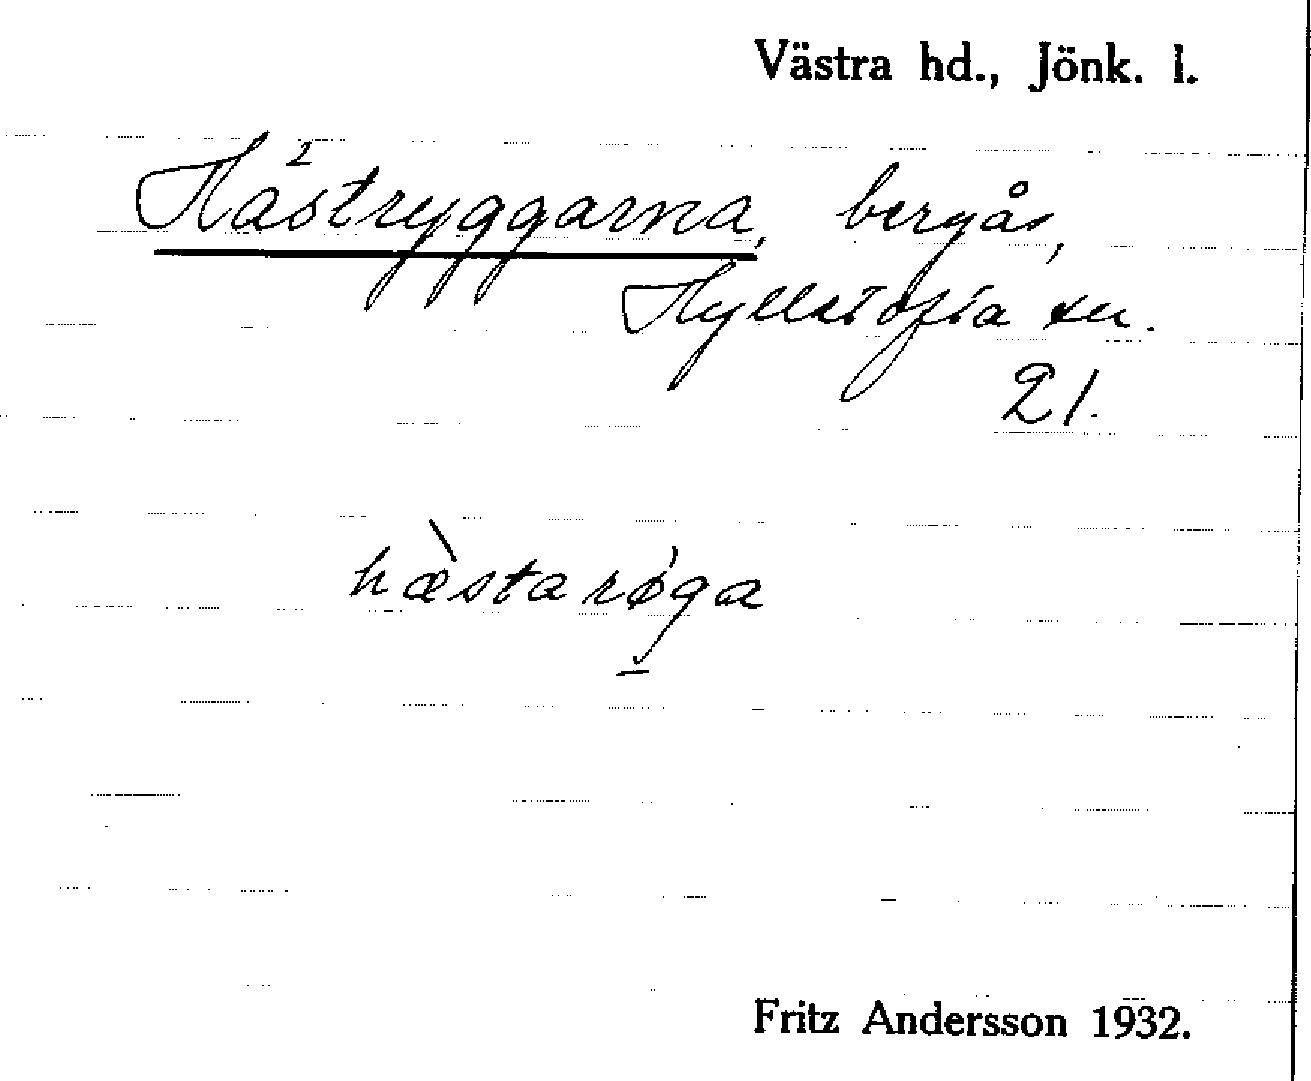 Västra hd., Jönk. l.
Hästryggarna, bergås,
Hyllstofta sn.
21.
hæ̀starøǵa
Fritz Andersson 1932.